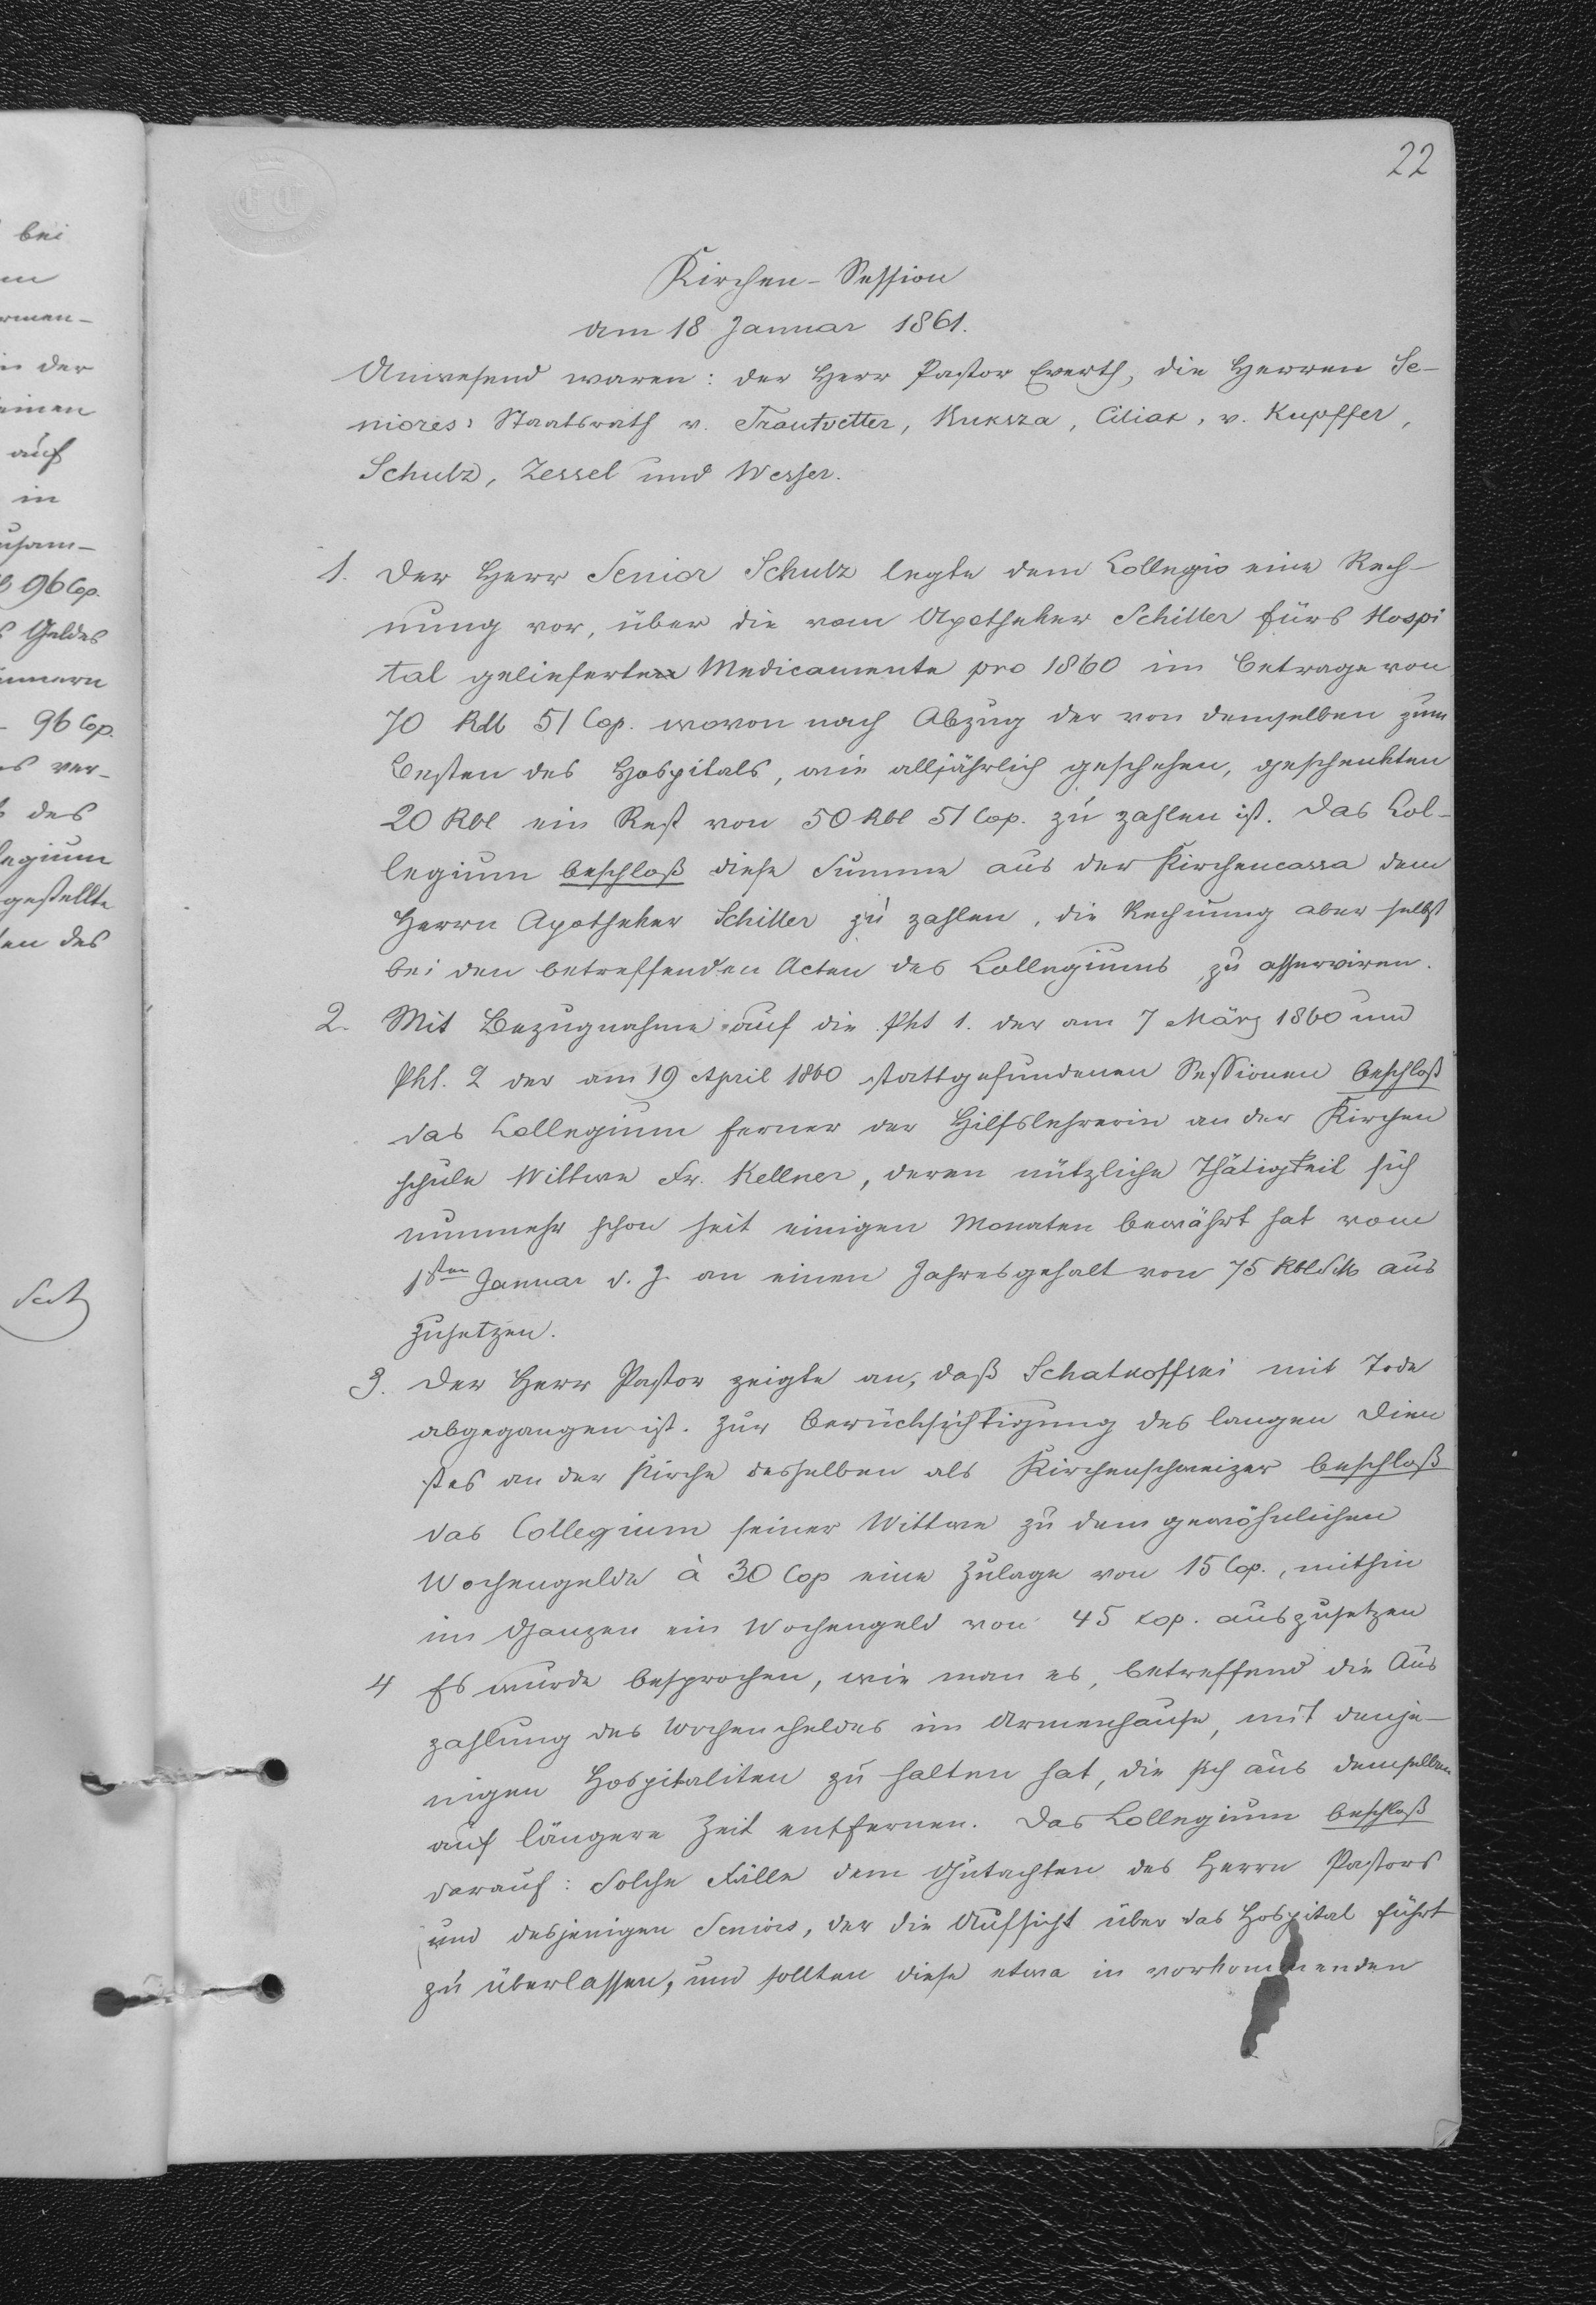 bei
rmen-
in der
einen
auf
in
usam-
96 Cop.
Geldes
96 Cop.
ver-
des
legium
gestellte
ten des
22
Kirchen-Session
am 18 Januar 1861.
Anwesend waren: der Herr Pastor Everth, die Herren Se-
niores: Staatsrath v. Trautvetter, Kuksza, Ciliak, v. Kupffer,
Schulz, Zessel und Wesser.
1. Der Herr Senior Schulz legte dem Collegio eine Rech-
nung vor, über die vom Apotheker Schiller fürs Hospi
tal gelieferten Medicamente pro 1860 im Betrage von
70 Rbl 51 Cop. wovon nach Abzug der von demselben zum
Besten des Hospitals, wie alljährlich geschehen, geschenkten
20 Rbl ein Rest von 50 Rbl 51 Cop. zu zahlen ist. Das Col-
legium beschloß diese Summe aus der Kirchencassa dem
Herrn Apotheker Schiller zu zahlen, die Rechnung aber selbst
bei den betreffenden Acten des Collegiums zu asserviren.
2. Mit Bezugnahme auf die Pkt 1. der am 7 März 1860 und
Pkt. 2 der am 19 April 1860 stattgefundenen Sessionen beschloß
das Collegium ferner der Hilfslehrerin an der Kirchen
schule Wittwe Fr. Kellner, deren nützliche Thätigkeit sich
nunmehr schon seit einigen Monaten bewährt hat vom
1sten Januar d. J. an einen Jahresgehalt von 75 Rbl S.M. aus
zusetzen.
3. Der Herr Pastor zeigte an, daß Schatkoffski mit Tode
abgegangen ist. Zur Berücksichtigung des langen Dien
stes an der Kirche desselben als Kirchenschweizer beschloß
das Collegium seiner Wittwe zu dem gewöhnlichen
Wochengelde à 30 Cop eine Zulage von 15 Cop., mithin
im Ganzen ein Wochengeld von 45 Kop. auszusetzen
4 Es wurde besprochen, wie man es, betreffend die Aus
zahlung des Wochengeldes im Armenhause, mit denje-
nigen Hospitaliten zu halten hat, die sich aus demselben
auf längere Zeit entfernen. Das Collegium beschloß
darauf: Solche Fälle dem Gutachten des Herrn Pastors
und desjenigen Seniors, der die Aufsicht über das Hospital führt
zu überlassen, und sollten diese etwa in vorkommenden